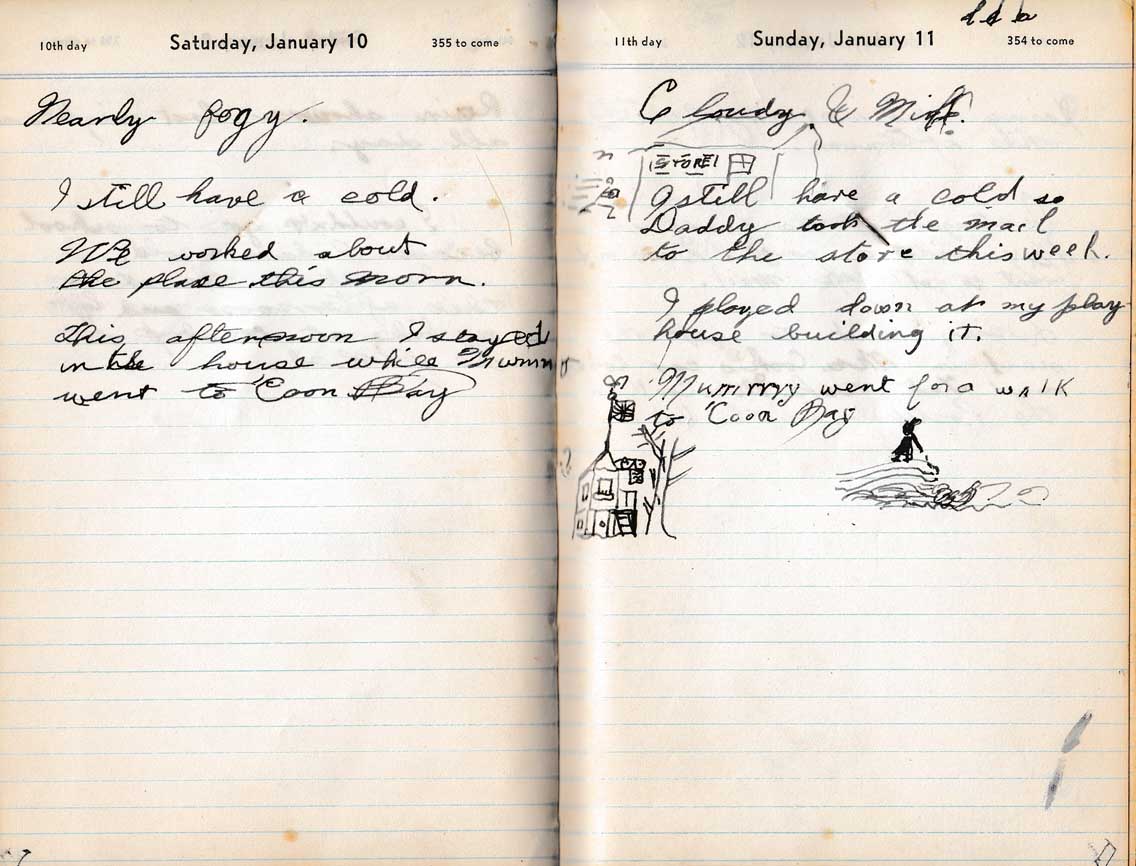 10th day Saturday, January 10 355 to come
Nearly fogy.
I still have a cold.
We worked about
the place this morn.
This afternoon I stayed
in the house while Mummy
went to 'Coon Bay
11th day Sunday, January 11 354 to come
Cloudy & Mist.
STORE
I still have a cold so
Daddy took the mail
to the store this week.
I played down at my play-
house building it.
Mummy went for a walk
to 'Coon' Bay